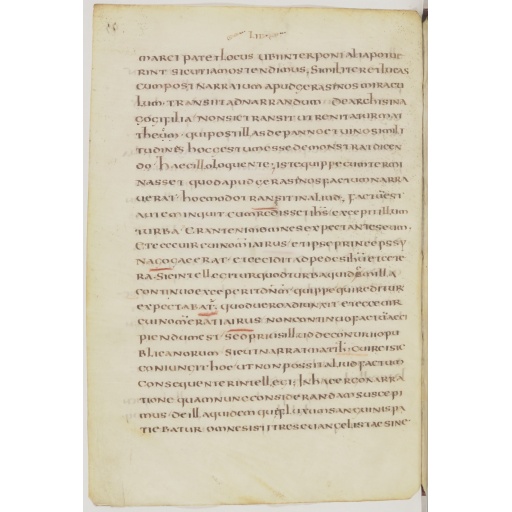 LIB
MARCI PATET LOCUS UBI INTERPONI ALIA POTUE
RINT SICUT IAM OSTENDIMUS, SIMILITER ET LUCAS
CUM POST NARRATUM APUD GERASINOS MIRACU
LUM TRANSIIT AD NARRANDUM DE ARCHISINA
GOGI FILIA NON SIC TRANSIIT UT RENITATUR MAT
THEUM QUI POST ILLAS DE PANNO ET VINO SIMILI
TUDINES HOC GESTUM ESSE DEMONSTRAT DICEN
DO HAEC ILLO LOQUENTE, ISTE QUIPPE CUM TERMI
NASSET QUOD APUD GERASINOS FACTUM NARRA
UERAT HOC MODO TRANSIIT IN ALIUD, FACTU EST
AUTEM INQUIT CUM REDISSET IHS EXCEPIT ILLUM
TURBA ERANT ENIM OMNES EXPECTANTES EUM,
ET ECCE UIR CUI NOM IAIRUS ET IPSE PRINCEPS SY
NAGOGAE ERAT ET CECIDIT AD PEDES IHU ET CETE
RA. SIC INTELLEGITUR QUOD TURBA QUIDEM ILLA
CONTINUO EXCEPERIT DNM QUIPPE QUI REDITUR
EXPECTABAT, QUOD UERO ADIUNXIT ET ECCE UIR
CUI NOM ERAT IAIRUS NON CONTINUO FACTU ACCI
PIENDUM EST SED PRIUS ILLUD DE CONUIUIO PU
BLICANORUM SICUT NARRAT MATTH CUI RE ISTE
CONIUNGIT HOC UT NON POSSIT ALIUD FACTUM
CONSEQUENTER INTELLEGI; IN HAC ERGO NARRA
TIONE QUAM NUNC CONSIDERANDAM SUSCEPI
MUS DE ILLA QUIDEM QUAE FLUXUM SANGUINIS PA
TIEBATUR OMNES ISTI TRES EUANGELISTAE SINE